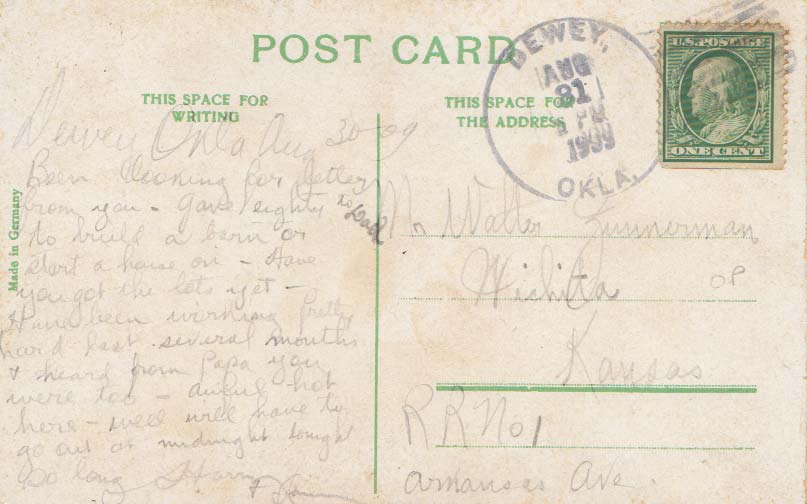 POST CARD
THIS SPACE FOR
WRITING
THIS SPACE FOR
THE ADDRESS
DEWEY,
AUG
31
1909
OKLA.
U.S. POSTAGE
ONE CENT
Made in Germany
Dewey Okla Aug 30-09
Been looking for letter
from you - Gave eighty
to build a barn or
start a house on - Have
you got the lots yet -
Have been working pretty
hard last several months
& heard from Papa you
were too - awful hot
here - well will have to
go out at midnight tonight
So long Harry
to Dad
Mr Walter Zimmerman
Wichita
OP
Kansas
RR No 1
Arkansas Ave